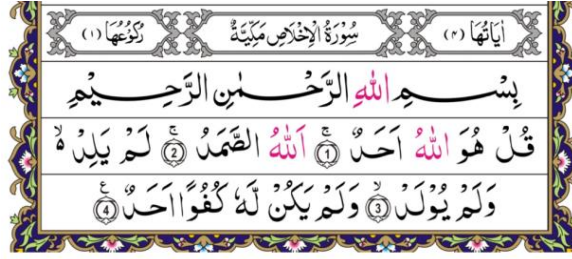 اٰیَاتُهَا (۴) سُوْرَةُ الْاِخْلَاصِ مَكِّيَّةٌ رُكُوْعُهَا (۱)
بِسْــــمِ اللّٰهِ الرَّحْــــمٰنِ الرَّحِــــيْمِ
قُلْ هُوَ اللّٰهُ اَحَدٌ ۚ 1 اَللّٰهُ الصَّمَدُ ۚ 2 لَمْ يَلِدْ ۙ
وَلَمْ يُوْلَدْ ۙ 3 وَلَمْ يَكُنْ لَّهٗ كُفُوًا اَحَدٌ ࣖ 4